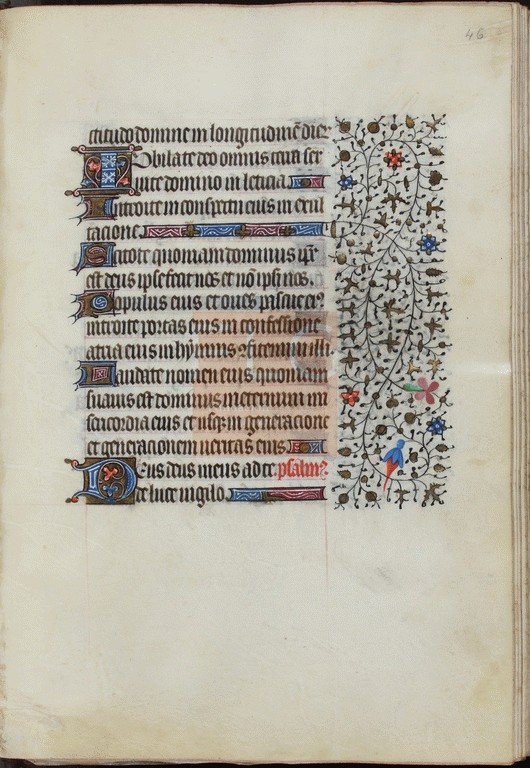 46
ctitudo domine in longitudinē dier
Iubilate deo omnis terra ser
uite domino in leticia.
Introite in conspectu eius in exul
tacione.
Scitote quoniam dominus ip̄e
est deus ipse fecit nos et nō ipsi nos.
Populus eius et oues pascue eiꝰ
introite portas eius in confessione
atria eius in hÿmnis ꝯfitemini illi.
Laudate nomen eius quoniam
suauis est dominus in eternum mi
sericordia eius et usqꝫ in generacione
et generacionem ueritas eius.
Deus deus meus ad te psalmꝰ.
de luce uigilo.